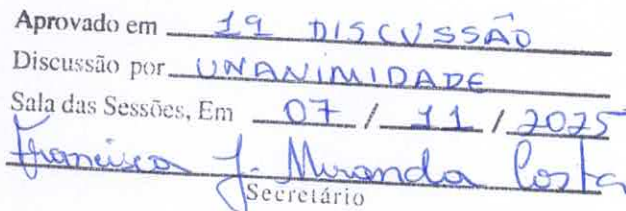 Aprovado em 1ª DISCUSSÃO
Discussão por UNANIMIDADE
Sala das Sessões, Em 07 / 11 / 2025
Francisca J. Miranda Costa
Secretário